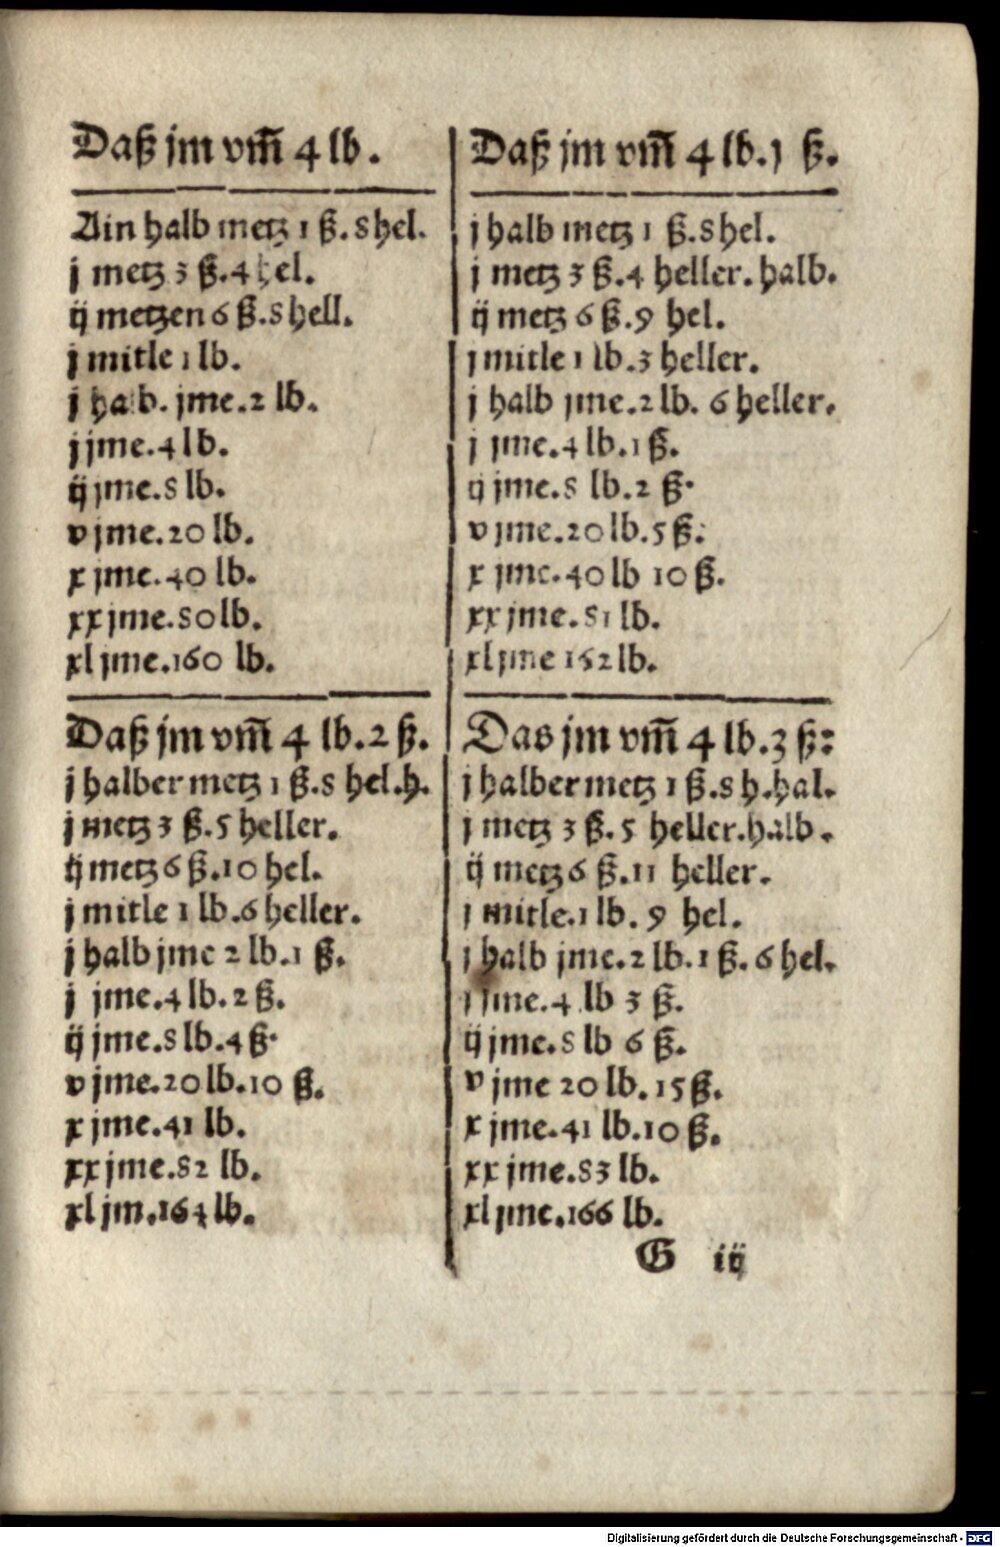 Daß jm vm̃ 4 lb.
Ain halb metz 1 ß. 8 hel.
j metz 3 ß. 4 hel.
ij metzen 6 ß. 8 hell.
j mitle 1 lb.
j halb. jme. 2 lb.
j jme. 4 lb.
ij jme. 8 lb.
v jme. 20 lb.
x jme. 40 lb.
xx jme. 80 lb.
xl jme. 160 lb.
Daß jm vm̃ 4 lb. 1 ß.
j halb metz 1 ß. 8 hel.
j metz 3 ß. 4 heller. halb.
ij metz 6 ß. 9 hel.
j mitle 1 lb. 3 heller.
j halb jme. 2 lb. 6 heller.
j jme. 4 lb. 1 ß.
ij jme. 8 lb. 2 ß.
v jme. 20 lb. 5 ß.
x jme. 40 lb 10 ß.
xx jme. 81 lb.
xl jme 162 lb.
Daß jm vm̃ 4 lb. 2 ß.
j halber metz 1 ß. 8 hel. h.
j metz 3 ß. 5 heller.
ij metz 6 ß. 10 hel.
j mitle 1 lb. 6 heller.
j halb jme 2 lb. 1 ß.
j jme. 4 lb. 2 ß.
ij jme. 8 lb. 4 ß.
v jme. 20 lb. 10 ß.
x jme. 41 lb.
xx jme. 82 lb.
xl jm. 164 lb.
Das jm vm̃ 4 lb. 3 ß:
j halber metz 1 ß. 8 h. hal.
j metz 3 ß. 5 heller. halb.
ij metz 6 ß. 11 heller.
j mitle. 1 lb. 9 hel.
j halb jme. 2 lb. 1 ß. 6 hel.
j jme. 4 lb 3 ß.
ij jme. 8 lb 6 ß.
v jme 20 lb. 15 ß.
x jme. 41 lb. 10 ß.
xx jme. 83 lb.
xl jme. 166 lb.
G iij
Digitalisierung gefördert durch die Deutsche Forschungsgemeinschaft - DFG